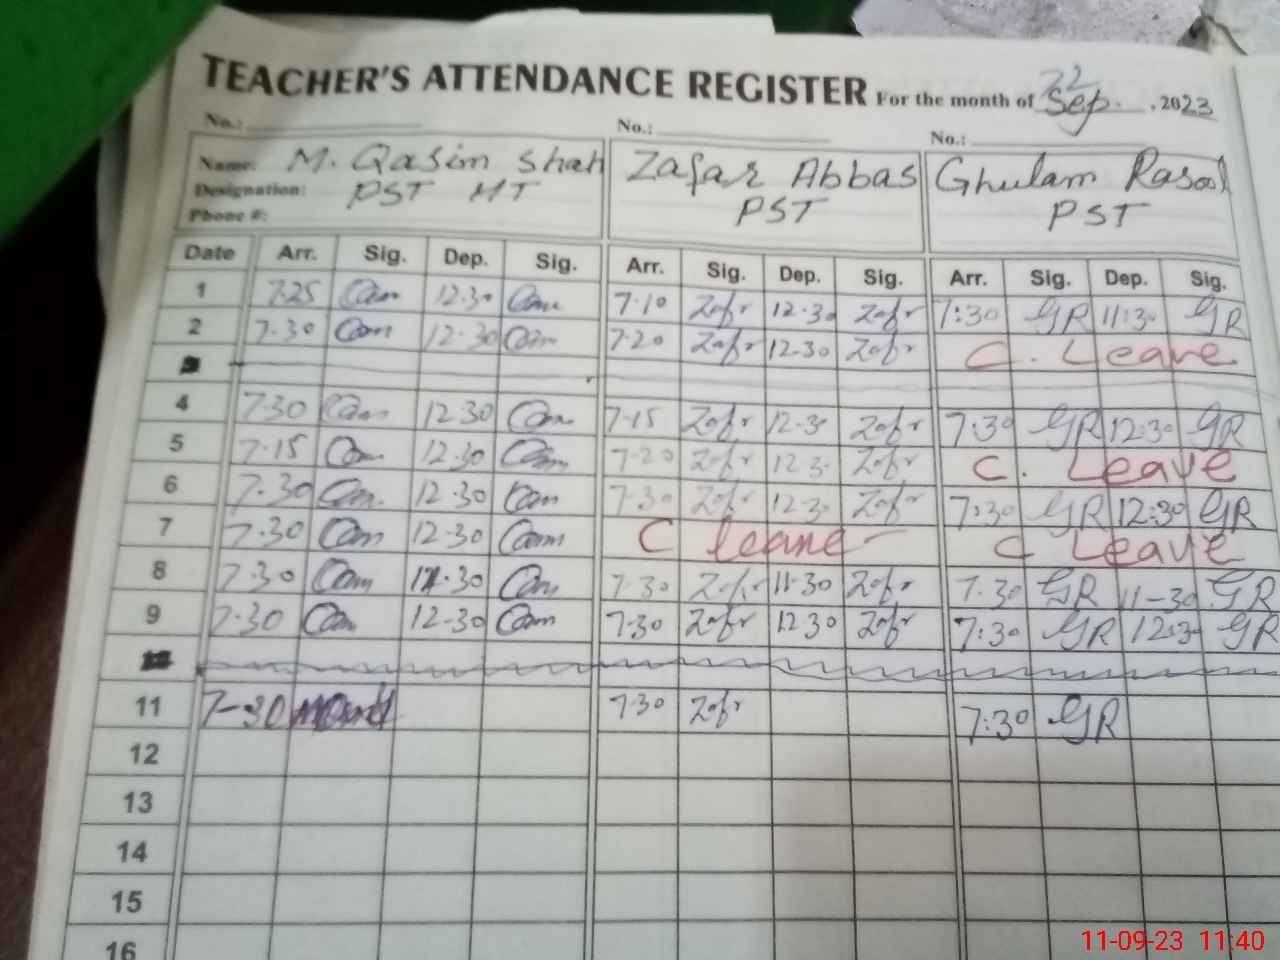 TEACHER'S ATTENDANCE REGISTER For the month of Sep. , 2023
22
No.: No.: No.:
Name: M. Qasim Shah Zafar Abbas Ghulam Rasool
Designation: PST HT PST PST
Phone #:
Date Arr. Sig. Dep. Sig. Arr. Sig. Dep. Sig. Arr. Sig. Dep. Sig.
1 7.25 12.30 7.10 Zafr 12.30 Zafr 7:30 GR 11:30 GR
2 7.30 12.30 7.20 Zafr 12.30 Zafr C. Leave
4 7.30 12.30 7.15 Zafr 12.3 Zafr 7:30 GR 12:30 GR
5 7.15 12.30 7.20 Zafr 12.3 Zafr C. Leave
6 7.30 12.30 7.30 Zafr 12.30 Zafr 7:30 GR 12:30 GR
7 7.30 12.30 C leave C Leave
8 7.30 11.30 7.30 Zafr 11.30 Zafr 7.30 GR 11-30 GR
9 7.30 12-30 7.30 Zafr 12.30 Zafr 7:30 GR 12:3 GR
11 7-30 7.30 Zafr 7:30 GR
12
13
14
15
16
11-09-23 11:40